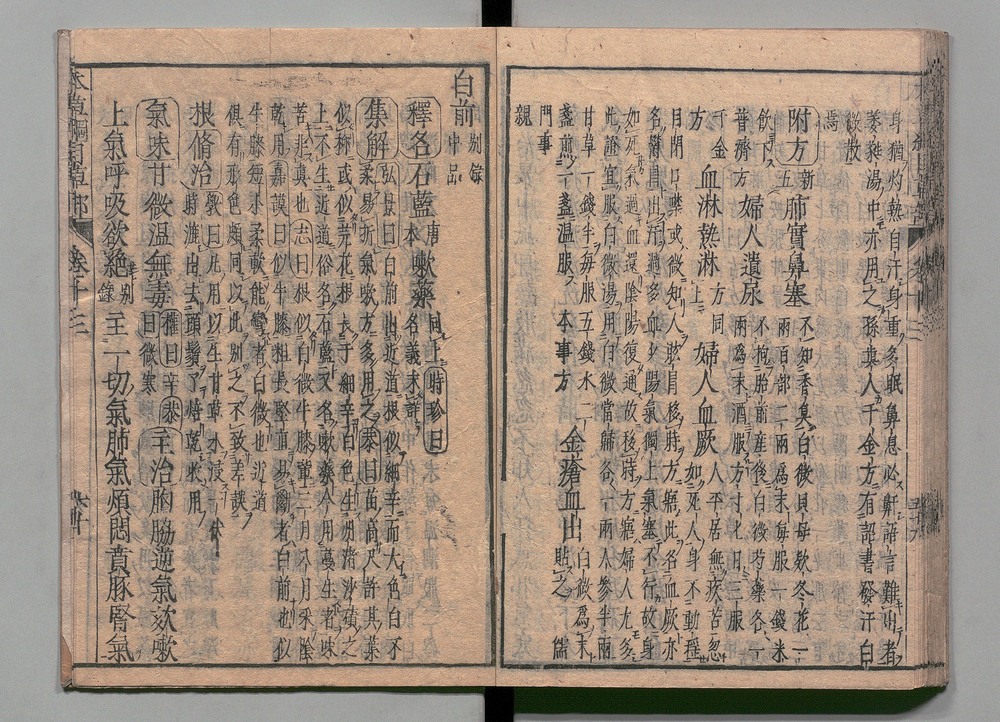 身猶灼熱自汗身重多眠鼻息必鼾語言難出者
萎蕤湯中亦用之孫真人千金方有詔書發汗白
微散
焉
附方新五肺實鼻塞不知香臭白微貝母欵冬花一兩百部二兩為末每服一錢米
飲下
普濟方婦人遺尿不拘胎前產後白微芍藥各一兩為末酒服方寸匕日三服
千金方血淋熱淋方同上婦人血厥人平居無疾苦忽如死人身不動搖
目閉口噤或微知人眩冒移時方寤此名血厥亦
名鬱冒出汗過多血少陽氣獨上氣塞不行故身
如死氣過血還陰陽復通故移時方寤婦人尤多
此證宜服白微湯用白微當歸各一兩人參半兩
甘草一錢半每服五錢水二
盞煎一盞溫服本事方金瘡血出白微為末貼之儒
門事
親
白前別錄中品
釋名石藍唐本嗽藥同上時珍曰名義未詳
集解弘景曰白前出近道根似細辛而大色白不
柔易折氣嗽方多用之恭曰苗高尺許其葉
似柳或似芫花根長于細辛白色生洲渚沙磧之
上不生近道俗名石藍又名嗽藥今用蔓生者味
苦非真也志曰根似白微牛膝輩二月八月采陰
乾用嘉謨曰似牛膝粗長堅直易斷者白前也似
牛膝短小柔軟能彎者白微也近道
俱有形色頗同以此別之不致差誤
根脩治斅曰凡用以生甘草水浸一伏
時漉出去頭鬚了焙乾收用
氣味甘微溫無毒權曰辛恭曰微寒主治胸脇逆氣欬嗽
上氣呼吸欲絕別錄主一切氣肺氣煩悶賁豚腎氣